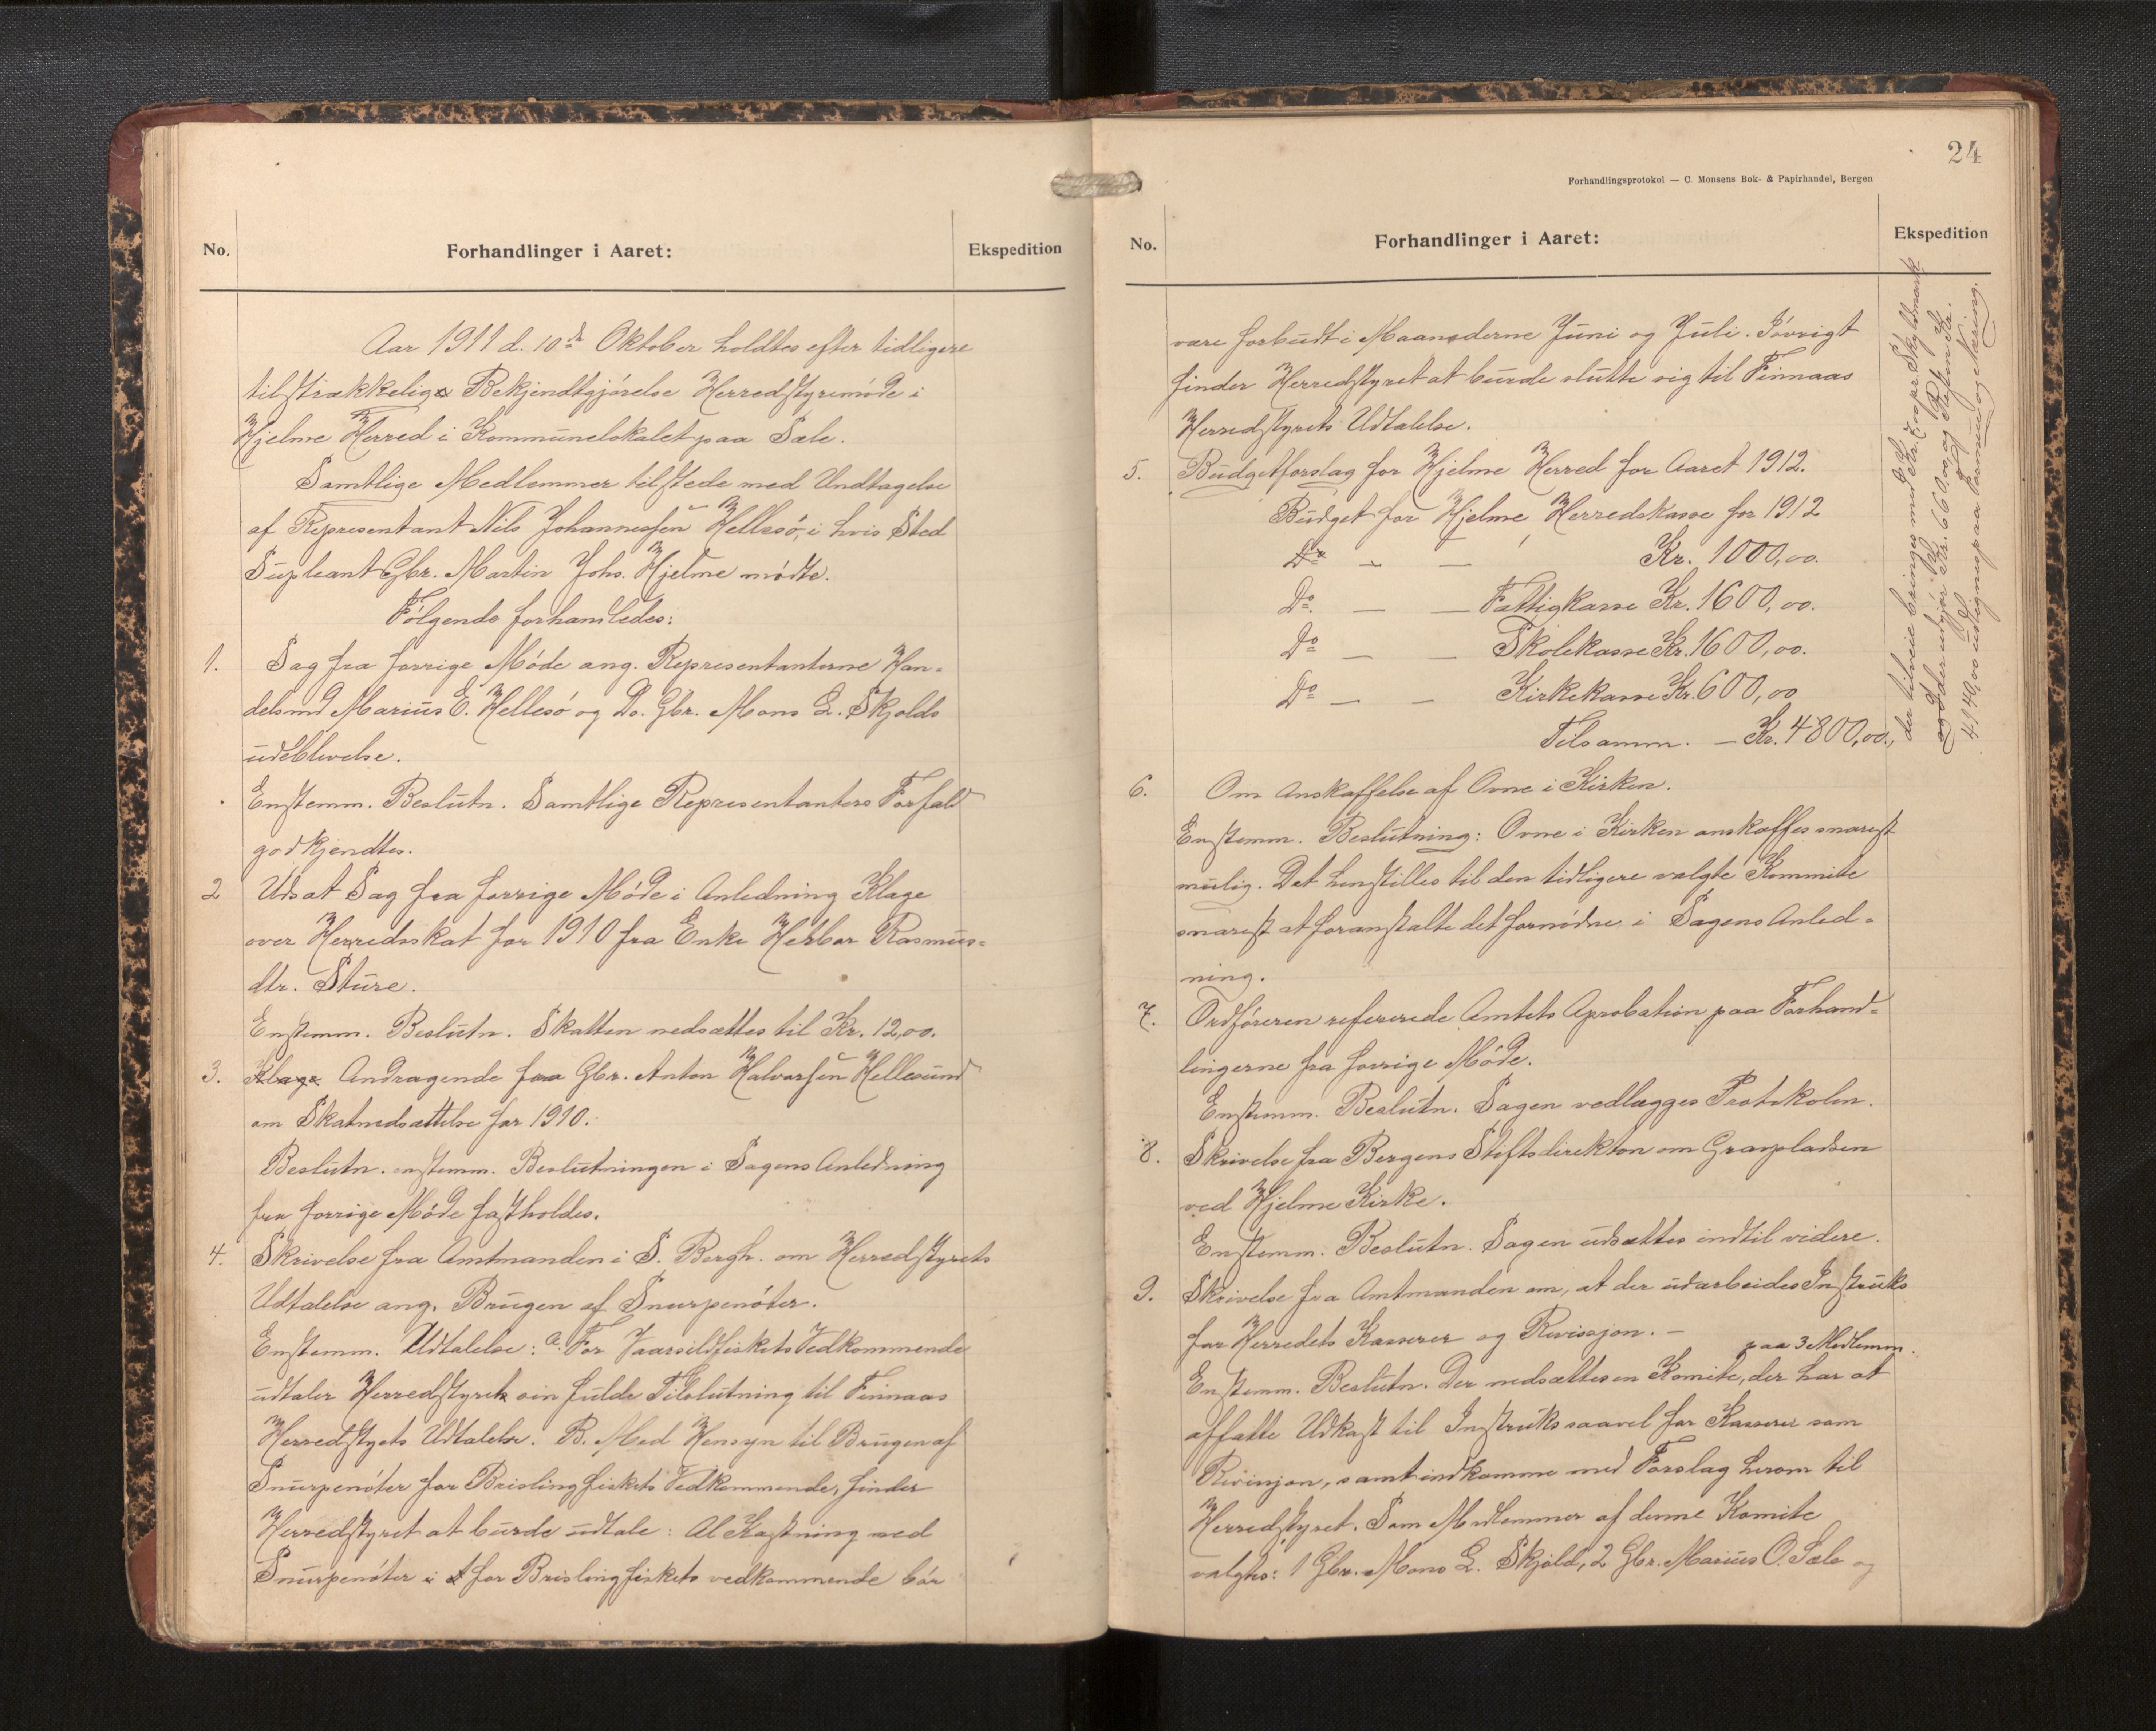 No.
Forhandlinger i Aaret:
Ekspedition
Aar 1911 d. 10de Oktober holdtes efter tidligere
tilstrækkelig Bekjendtgjørelse Herredstyremøde i
Hjelme Herred i Kommunelokalet paa Sæle.
Samtlige Medlemmer tilstede med Undtagelse
af Representant Nils Johannessen Hellesø, i hvis Sted
Supleant Gbr. Martin Johs. Hjelme mødte.
Følgende forhandledes:
1. Sag fra forrige Møde ang. Representanterne Han-
delsmd Marius E. Hellesø og Do. Gbr. Mons L. Skjolds
udeblivelse.
Enstemm. Beslutn. Samtlige Representanters Forfald
godkjendtes.
2 Udsat Sag fra forrige Møde i Anledning Klage
over Herredsskat for 1910 fra Enke Herbor Rasmus-
dtr. Sture.
Enstemm. Beslutn. Skatten nedsættes til Kr. 12,00.
3. Klage Andragende fra Gbr. Anton Halvorsen Hellesund
om Skatnedsættelse for 1910.
Beslutn. enstemm. Beslutningen i Sagens Anledning
fra forrige Møde fastholdes.
4. Skrivelse fra Amtmanden i S. Bergh. om Herredstyrets
Udtalelse ang. Brugen af Snurpenøter.
Enstemm. Udtalelse: a. For Vaarsildfiskets Vedkommende
udtaler Herredstyret sin fulde Tilslutning til Finnaas
Herredstyets Udtalelse. B. Med Hensyn til Brugen af
Snurpenøter for Brislingfiskets Vedkommende, finder
Herredstyret at burde udtale: Al Kastning med
Snurpenøter i for Brislingfiskets vedkommende bør
24
Forhandlingsprotokol — C. Monsens Bok- & Papirhandel, Bergen
No.
Forhandlinger i Aaret:
Ekspedition
være forbudt i Maanederne Juni og Juli. Iøvrigt
finder Herredstyret at burde slutte sig til Finnaas
Herredstyrets Udtalelse.
5. Budgetforslag for Hjelme Herred for Aaret 1912.
Budget for Hjelme Herredskasse for 1912
Do — — Kr. 1000,00.
Do. — — Fattigkasse Kr. 1600,00.
Do — — Skolekasse Kr. 1600,00.
Do — — Kirkekasse Kr. 600,00
Tilsamm. — Kr. 4800,00.,
der tilveie bringes med Kr. pr. Skyldmark
og der udgjør Kr. 660,00, og Resten Kr.
4140,00 udlignes paa Formue og Næring.
6. Om Anskaffelse af Ovne i Kirken.
Enstemm. Beslutning: Ovne i Kirken anskaffes snarest
mulig. Det henstilles til den tidligere valgte Kommite
snarest at foranstalte det fornødne i Sagens Anled-
ning.
7. Ordføreren refererede Amtets Aprobation paa Forhand-
lingerne fra forrige Møde.
Enstemm. Beslutn. Sagen vedlægges Protokolen.
8. Skrivelse fra Bergens Stiftsdirektion om Gravpladsen
ved Hjelme Kirke.
Enstemm. Beslutn. Sagen udsættes indtil videre.
9. Skrivelse fra Amtmanden om, at der udarbeides Instruks
for Herredets Kasserer og Revissjon. —
paa 3 Medlemm.
Enstemm. Beslutn. Der nedsættes en Komite, der har at
affatte Udkast til Instruks saavel for Kasserer som
Revinjon, samt indkomme med Forslag herom til
Herredstyret. Som Medlemmer af denne Komite
valgtes: 1 Gbr. Mons L. Skjold, 2 Gbr. Marius O. Sæle og